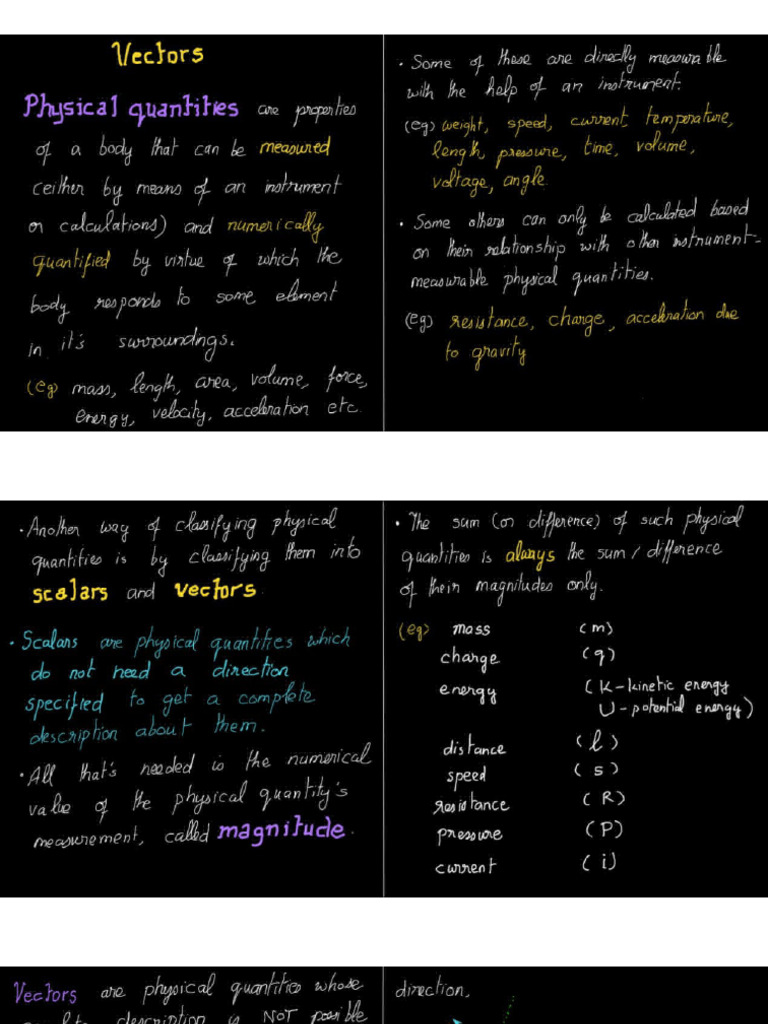 Vectors
Physical quantities are properties
of a body that can be measured
(either by means of an instrument
or calculations) and numerically
quantified by virtue of which the
body responds to some element
in it's surroundings.
(eg) mass, length, area, volume, force,
energy, velocity, acceleration etc.
• Some of these are directly measurable
with the help of an instrument.
(eg) weight, speed, current, temperature,
length, pressure, time, volume,
voltage, angle.
• Some others can only be calculated based
on their relationship with other instrument-
measurable physical quantities.
(eg) resistance, charge, acceleration due
to gravity
• Another way of classifying physical
quantities is by classifying them into
scalars and vectors.
• Scalars are physical quantities which
do not need a direction
specified to get a complete
description about them.
• All that's needed is the numerical
value of the physical quantity's
measurement, called magnitude.
• The sum (or difference) of such physical
quantities is always the sum / difference
of their magnitudes only.
(eg) mass (m)
charge (q)
energy (K-kinetic energy
U-potential energy)
distance (l)
speed (s)
resistance (R)
pressure (P)
current (i)
Vectors are physical quantities whose
description is NOT possible
direction,